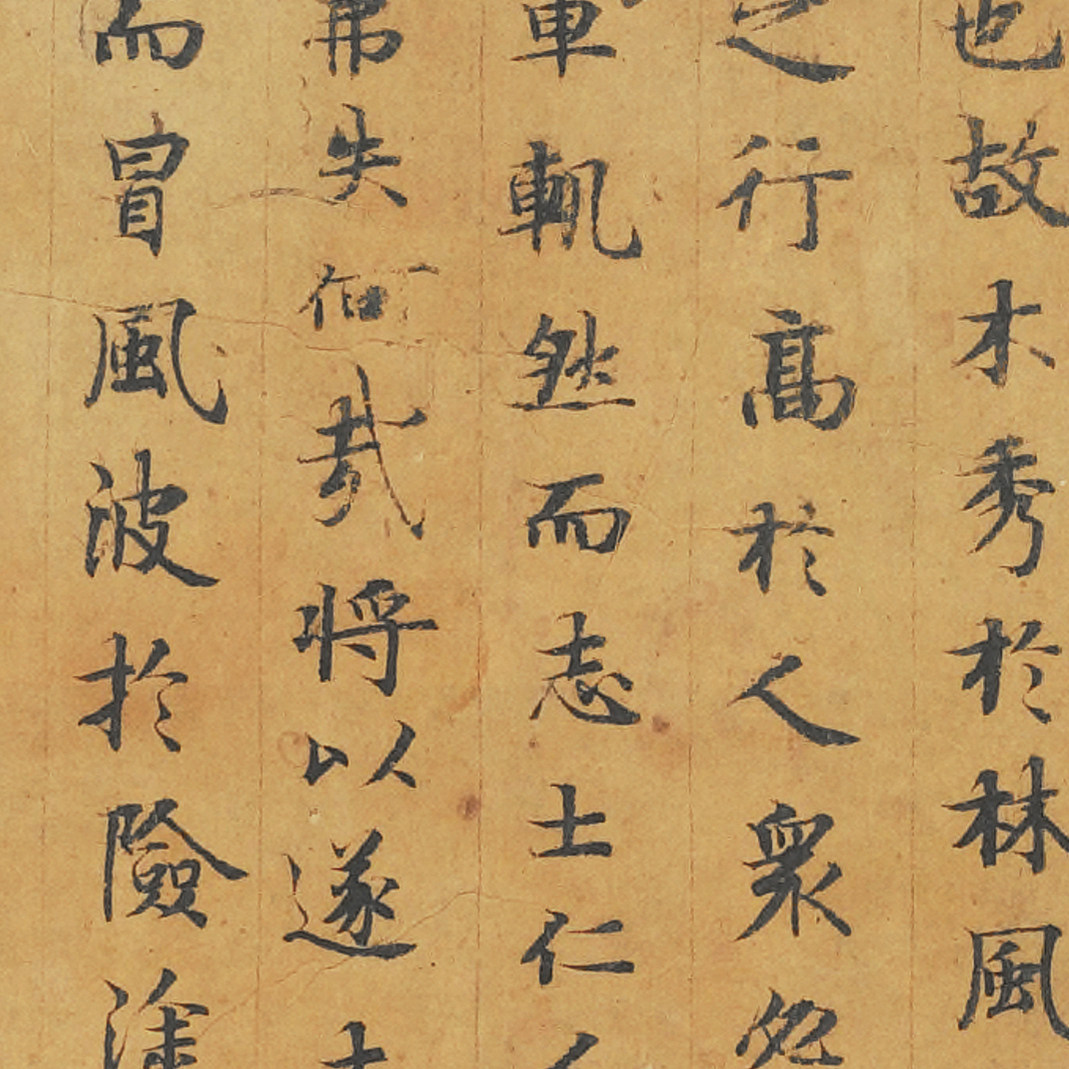 也故木秀於林風
之行高於人衆
車軌然而志士仁人
弗失何哉將以遂志
而冒風波於險塗